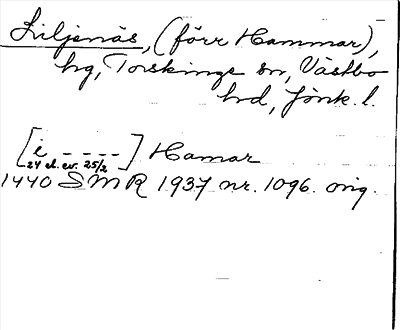 Liljenäs, (förr Hammar),
hg, Torskinge sn, Västbo
hd, Jönk. l.
[i - - - - -] Hamar
24 el. ev. 25/2
1440 SMR 1937 nr. 1096. orig.